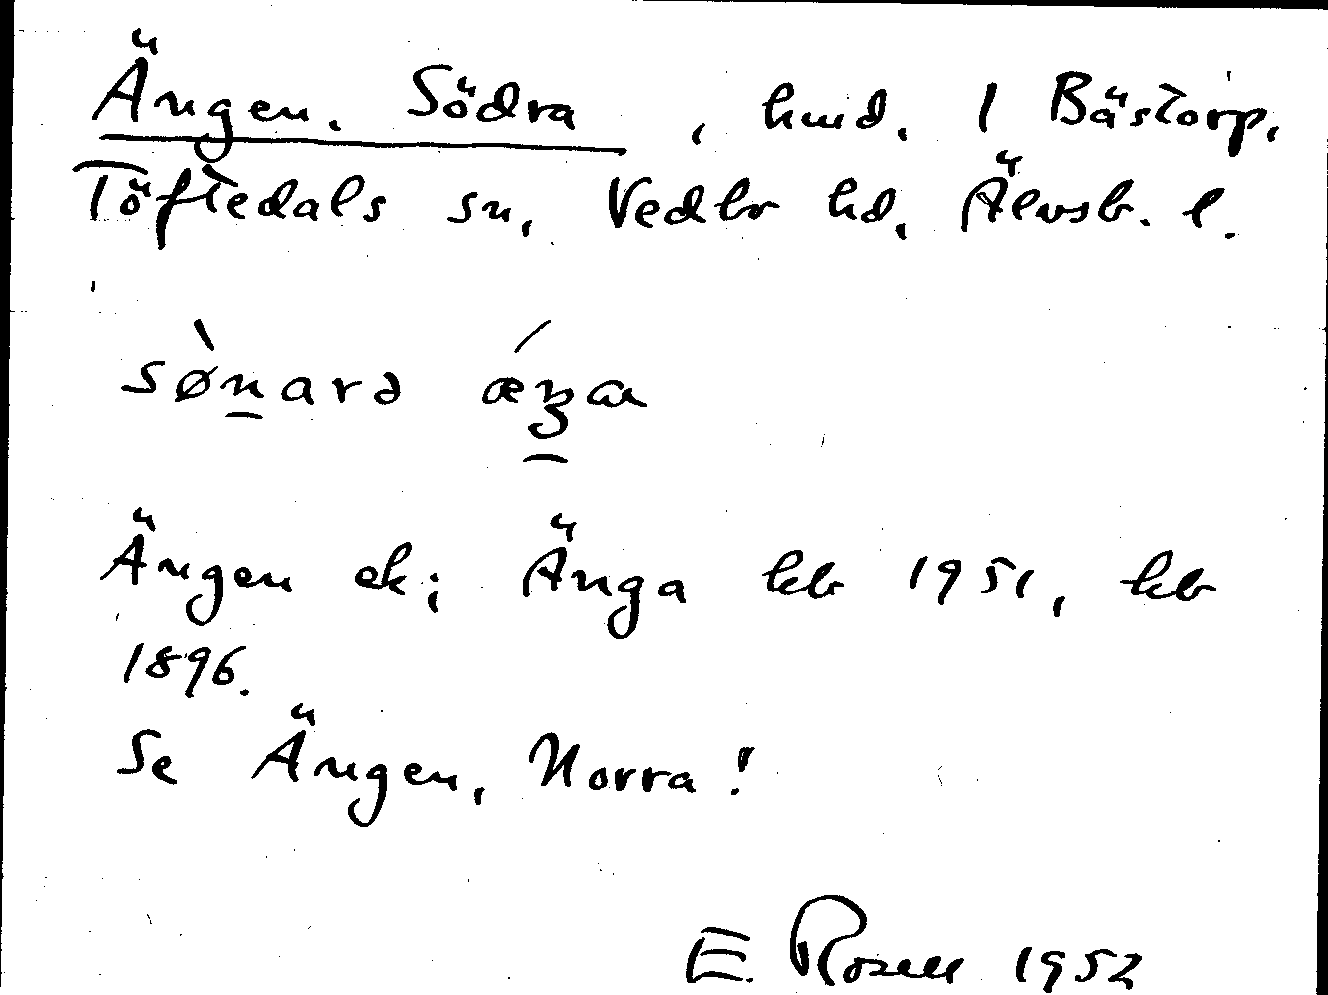 Ängen. Södra, hmd. 1 Bästorp,
Töftedals sn, Vedbo hd, Älvsb. l.
sø̀n̲arə ǽŋ̲a
Ängen ek; Änga kb 1951, kb
1896.
Se Ängen, Norra!
E. Rosell 1952